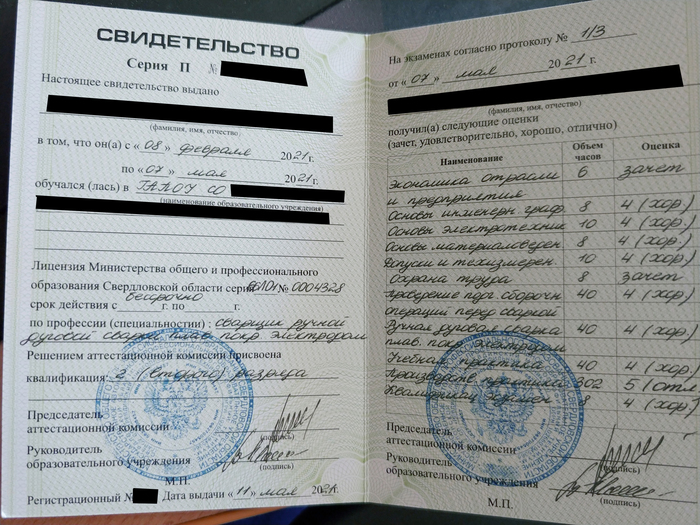 СВИДЕТЕЛЬСТВО
Серия П №
Настоящее свидетельство выдано
(фамилия, имя, отчество
в том, что он(а) с «08» февраля 2021 г.
по «07» мая 2021 г.
обучался (лась) в ГАПОУ СО
(наименование образовательного учреждения)
Лицензия Министерства общего и профессионального
образования Свердловской области серия № 0004328
срок действия с бессрочно г. по г.
по профессии (специальности) : сварщик ручной
дуговой сварки плав. покр электродом
Решением аттестационной комиссии присвоена
квалификация: 2 (второго) разряда
Председатель
аттестационной комиссии
(подпись)
Руководитель
образовательного учреждения
(подпись)
М.П.
Регистрационный № Дата выдачи «11» мая 2021.
На экзаменах согласно протоколу № 1/3
от «07» мая 2021 г.
(фамилия, имя, отчество)
получил(а) следующие оценки
(зачет, удовлетворительно, хорошо, отлично)
Наименование Объем часов Оценка
Экономика отрасли 6 зачет
и предприятия
Основы инженерн. граф. 8 4 (хор.)
Основы электротехник 10 4 (хор.)
Основы материаловеден. 8 4 (хор.)
Допуски и техизмерен. 10 4 (хор.)
Охрана труда 8 зачет
Проведение подг. сборочн 40 4 (хор)
операций перед сваркой
Ручная дуговая сварка 40 4 (хор.)
плав. покр электродом
Учебная практика 40 4 (хор.)
Производств. практика 302 5 (отл.
Квалификац. экзамен 8 4 (хор.)
Председатель
аттестационной комиссии
(подпись)
Руководитель
образовательного учреждения
(подпись)
М.П.